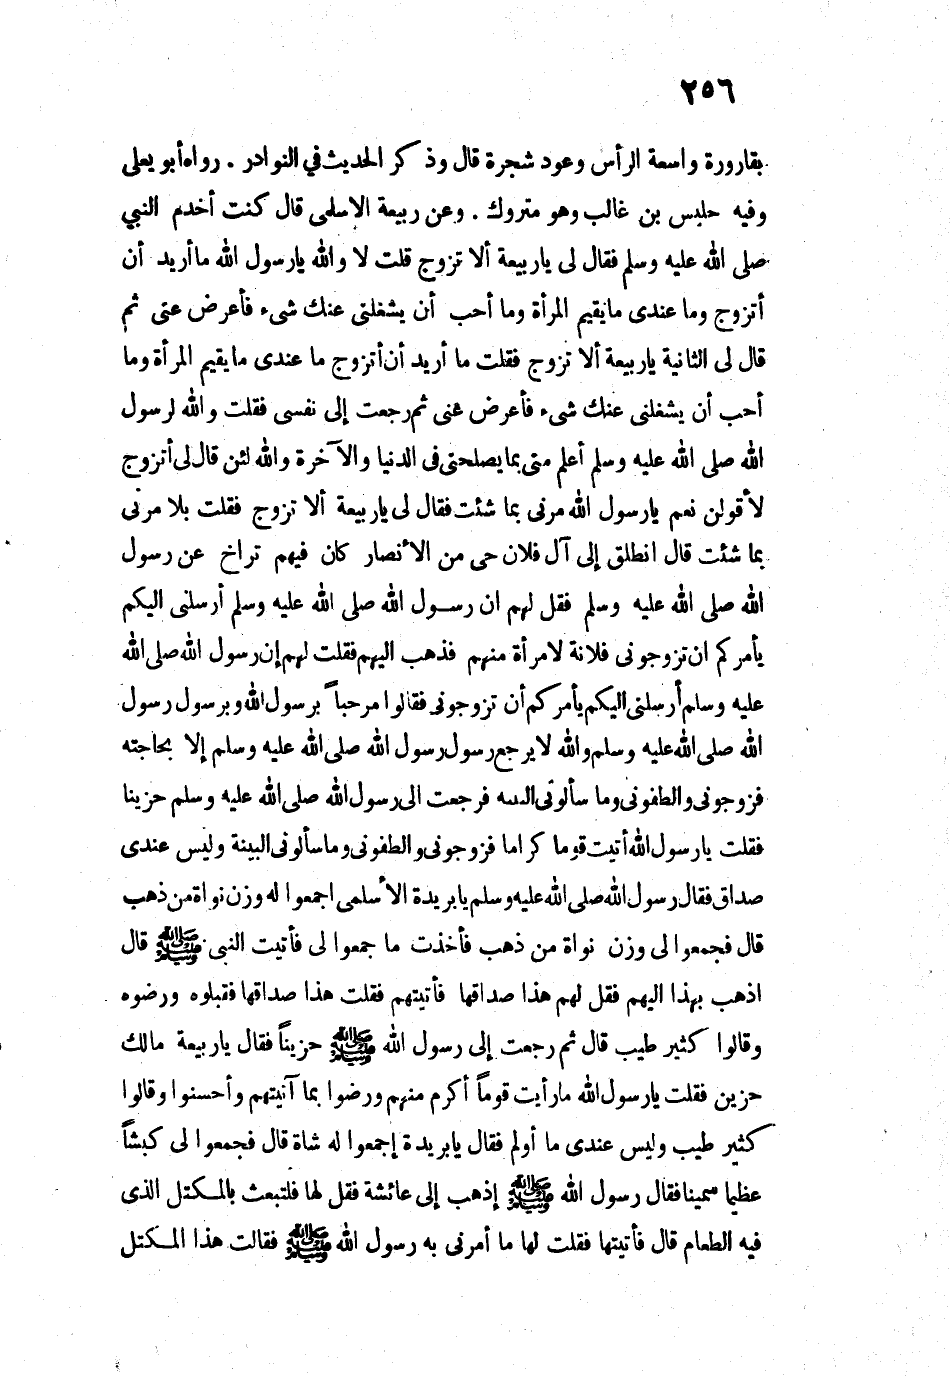 ٢٥٦
بقارورة واسعة الرأس وعود شجرة قال وذكر الحديث في النوادر . رواه أبو يعلى
وفيه حلبس بن غالب وهو متروك . وعن ربيعة الاسلمى قال كنت أخدم النبي
صلى الله عليه وسلم فقال لى ياربيعة ألا تزوج قلت لا والله يارسول الله ما أريد أن
أتزوج وما عندى مايقيم المرأة وما أحب أن يشغلنى عنك شىء فأعرض عنى ثم
قال لى الثانية ياربيعة ألا تزوج فقلت ما أريد أن أتزوج ما عندى مايقيم المرأة وما
أحب أن يشغلنى عنك شىء فأعرض عنى ثم رجعت إلى نفسى فقلت والله لرسول
الله صلى الله عليه وسلم أعلم منى بما يصلحنى فى الدنيا والآخرة والله لئن قال لى أتزوج
لأقولن نعم يارسول الله مرنى بما شئت فقال لى ياربيعة ألا تزوج فقلت بلا مرنى
بما شئت قال انطلق إلى آل فلان حى من الأنصار كان فيهم تراخ عن رسول
الله صلى الله عليه وسلم فقل لهم ان رسول الله صلى الله عليه وسلم أرسلنى اليكم
يأمركم ان تزوجونى فلانة لامرأة منهم فذهب اليهم فقلت لهم إن رسول الله صلى الله
عليه وسلم أرسلنى اليكم يأمركم أن تزوجونى فقالوا مرحباً برسول الله وبرسول رسول
الله صلى الله عليه وسلم والله لا يرجع رسول رسول الله صلى الله عليه وسلم إلا بحاجته
فزوجونى والطفونى وما سألونى البينة فرجعت الى رسول الله صلى الله عليه وسلم حزينا
فقلت يارسول الله أتيت قوما كراما فزوجونى والطفونى وما سألونى البينة وليس عندى
صداق فقال رسول الله صلى الله عليه وسلم يابريدة الأسلمى اجمعوا له وزن نواة من ذهب
قال فجمعوا لى وزن نواة من ذهب فأخذت ما جمعوا لى فأتيت النبى ﷺ قال
اذهب بهذا اليهم فقل لهم هذا صداقها فأتيتهم فقلت هذا صداقها فقبلوه ورضوه
وقالوا كثير طيب قال ثم رجعت إلى رسول الله ﷺ حزيناً فقال ياربيعة مالك
حزين فقلت يارسول الله مارأيت قوماً أكرم منهم ورضوا بما آتيتهم وأحسنوا وقالوا
كثير طيب وليس عندى ما أولم فقال يابريدة إجمعوا له شاة قال فجمعوا لى كبشاً
عظيما سمينا فقال رسول الله ﷺ إذهب إلى عائشة فقل لها فلتبعث بالمكتل الذى
فيه الطعام قال فأتيتها فقلت لها ما أمرنى به رسول الله ﷺ فقالت هذا المكتل